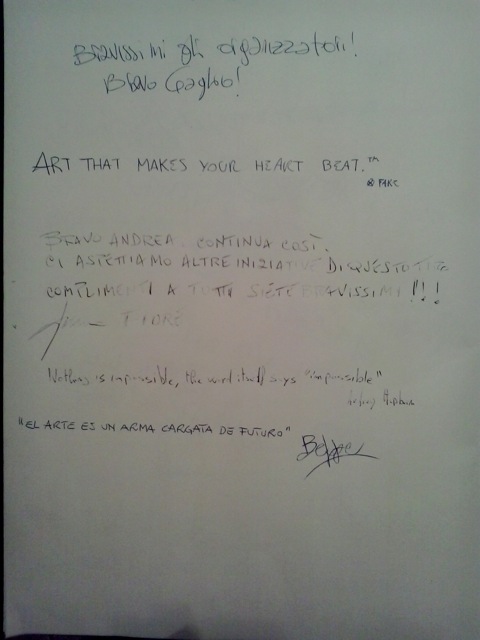 Bravissimi gli organizzatori!
Bravo
ART THAT MAKES YOUR HEART BEAT.™
® FAKE
BRAVO ANDREA. CONTINUA COSÌ.
CI ASPETTIAMO ALTRE INIZIATIVE DI QUESTO TIPO
COMPLIMENTI A TUTTI SIETE BRAVISSIMI!!!
Nothing is impossible, the word itself says "impossible"
Audrey Hepburn
"EL ARTE ES UN ARMA CARGATA DE FUTURO"